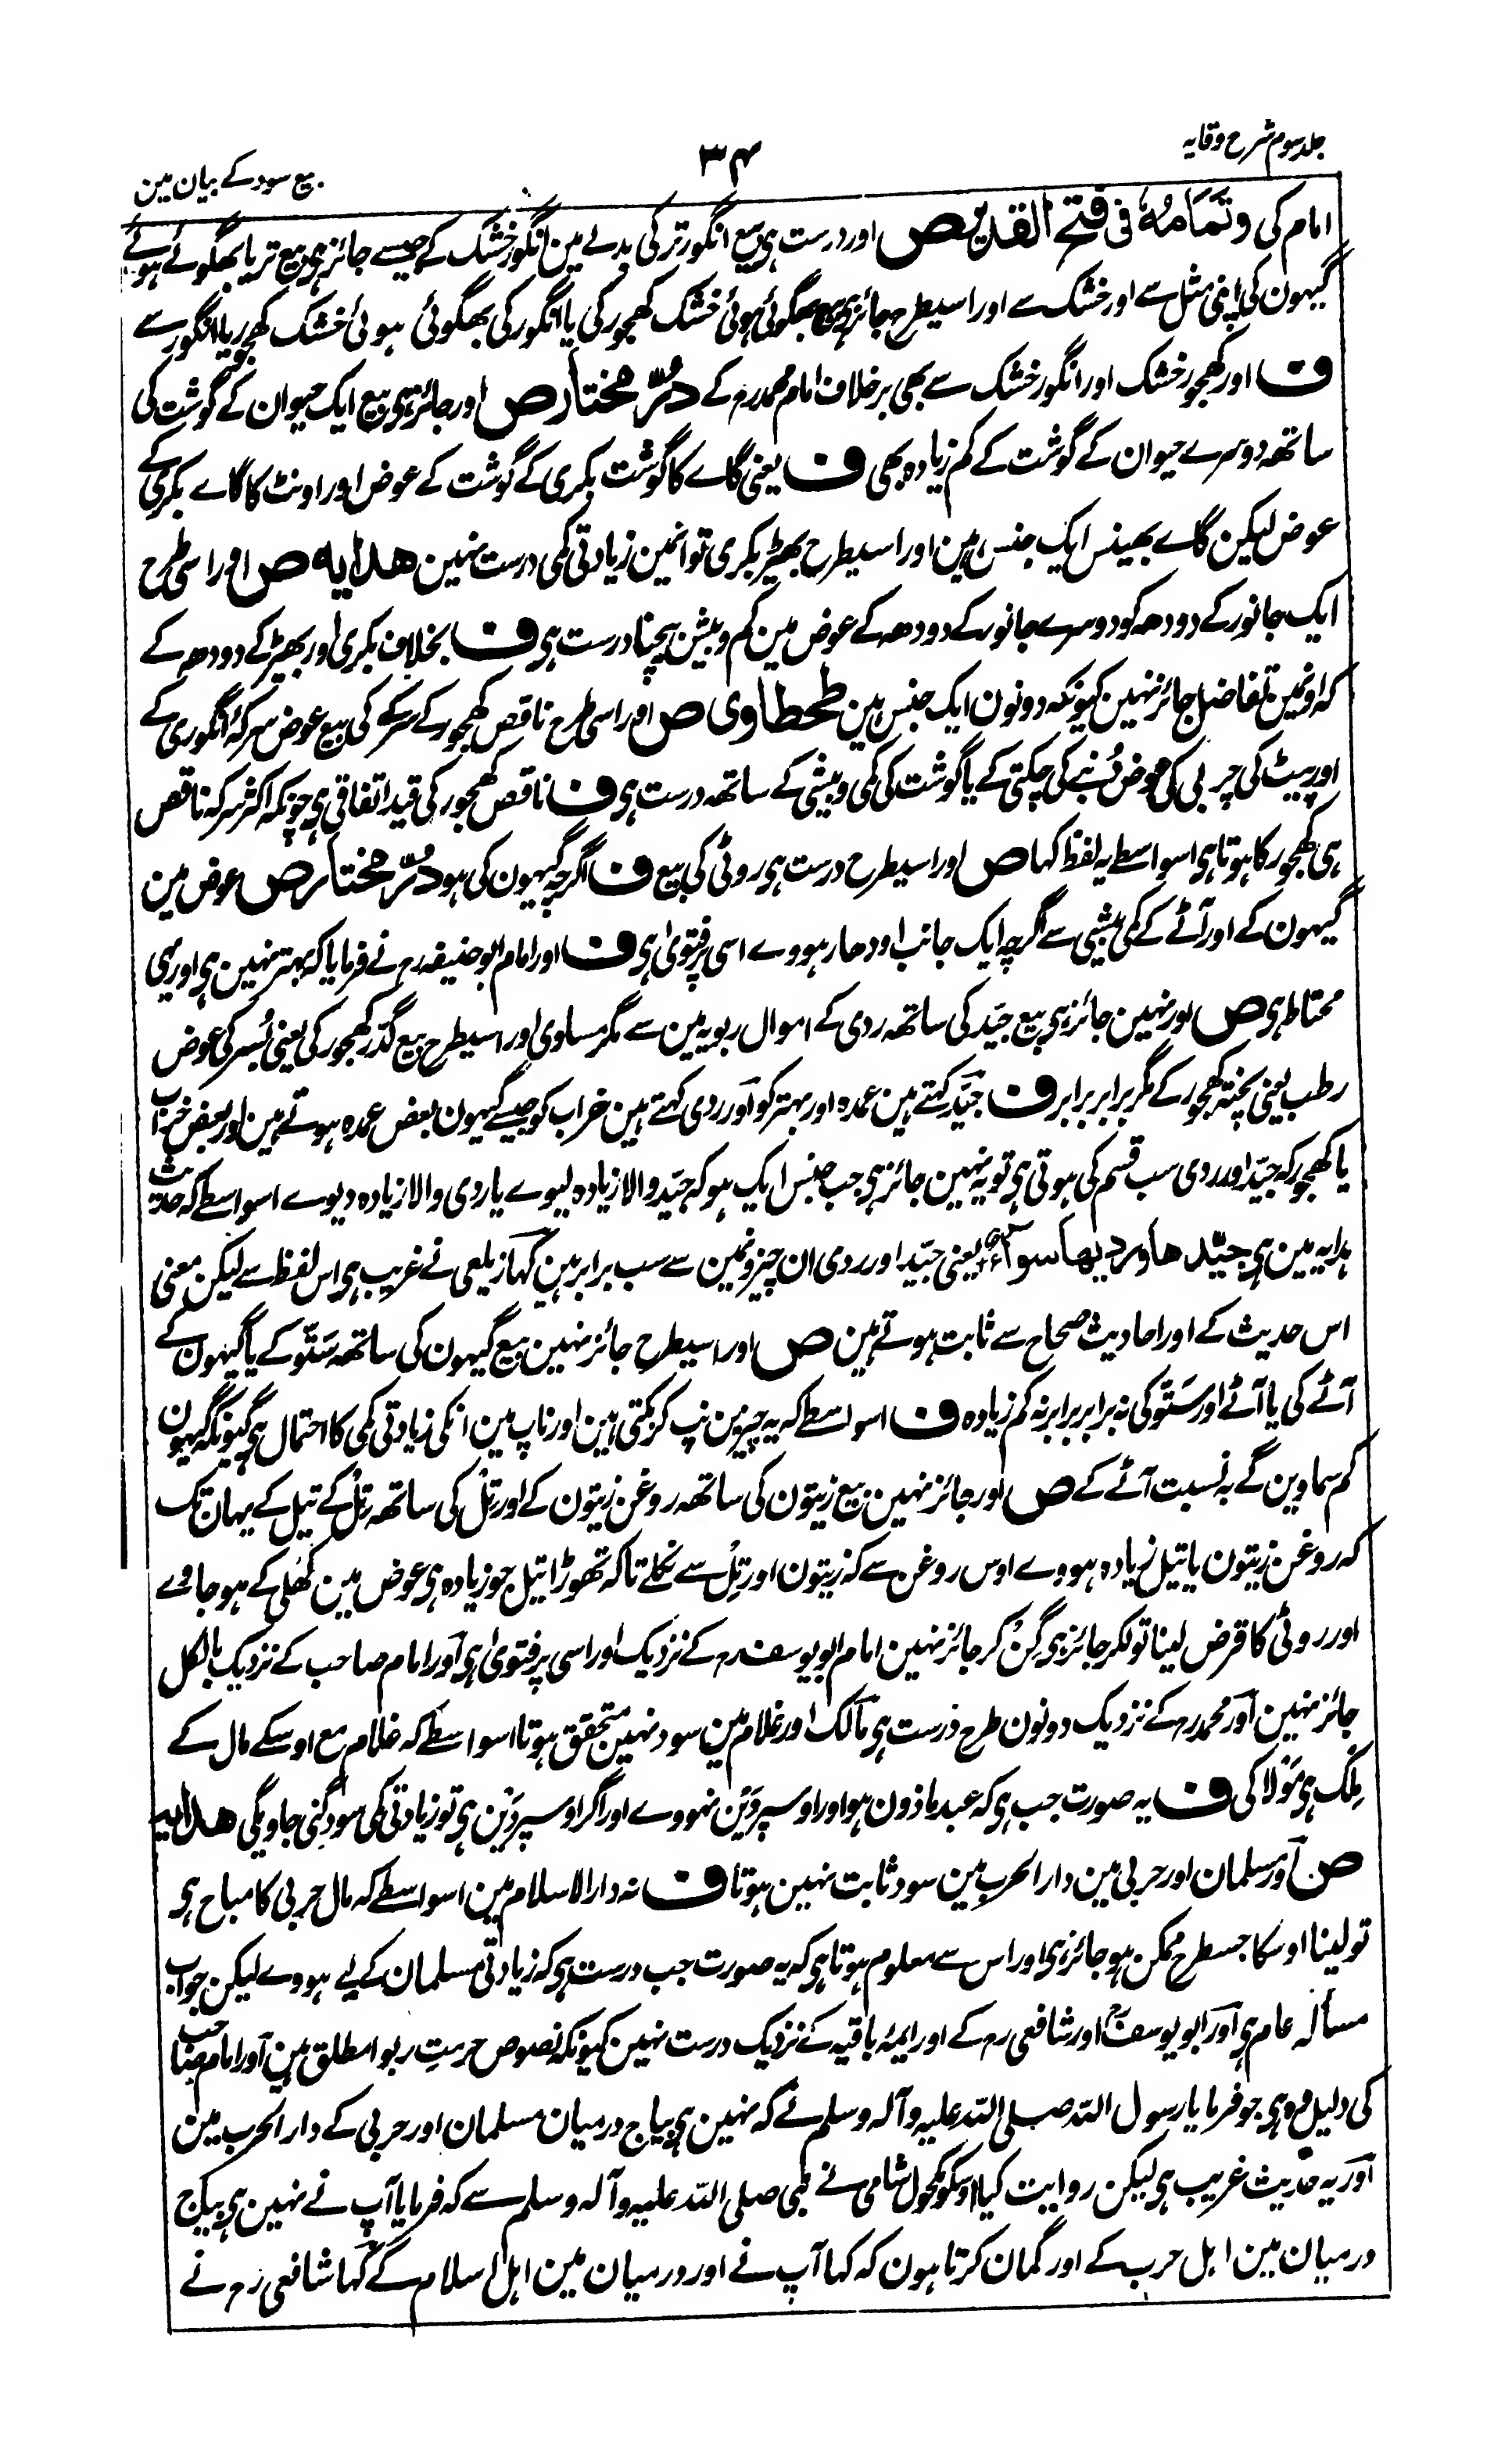 جلد سوم شرح وقایہ
۳۴
بیع سود کے بیان مین
امام کی وتمامہ فی فتح القدیر ص اور درست ہی بیع انگور تر کی بدلے مین انگور خشک کے جیسے جائز ہی بیع تر یا بھگوئے ہوئے
گیہون کی اپنی مثل سے اور خشک سے اور اسیطرح جائز ہی بیع بھگوئی ہوئی خشک کھجور کی یا انگور کی بھگوئی ہوئی خشک کھجور یا انگور سے
ف اور کھجور خشک اور انگور خشک سے بھی برخلاف امام محمد رح کے درّ مختار ص اور جائز ہی بیع ایک حیوان کے گوشت کی
ساتھ دوسرے حیوان کے گوشت کے کم زیادہ بھی ف یعنی گاے کا گوشت بکری کے گوشت کے عوض اور اونٹ کا گاے بکری کے
عوض لیکن گاے بھینس ایک جنس ہین اور اسیطرح بھیڑ بکری تو انمین زیادتی کمی درست نہین ھدایہ ص اور اسی طرح
ایک جانور کے دودھ کو دوسرے جانور کے دودھ کے عوض مین کم و بیش بیچنا درست ہی ف بخلاف بکری اور بھیڑ کے دودھ کے
کہ اونمین تفاضل جائز نہین کیونکہ دونون ایک جنس ہین طحطاوی ص اور اسی طرح ناقص کھجور کے سرکے کی بیع عوض سرکۂ انگوری کے
اور پیٹ کی چربی کی عوض دُنبے کی چکتی کے یا گوشت کی کمی و بیشی کے ساتھ درست ہی ف ناقص کھجور کی قید اتفاقی ہی چونکہ اکثر سرکہ ناقص
ہی کھجور کا ہوتا ہی اسواسطے یہ لفظ کہا ص اور اسیطرح درست ہی روٹی کی بیع ف اگرچہ گیہون کی ہو درّ مختار ص عوض مین
گیہون کے اور آٹے کے کمی بیشی سے اگرچہ ایک جانب اودھار ہووے اسی پر فتویٰ ہی ف اور امام ابو حنیفہ رح نے فرمایا کہ بہتر نہین ہی اور یہی
محتاط ہی ص اور نہین جائز ہی بیع جیّد کی ساتھ ردی کے اموال ربویہ مین سے مگر مساوی اور اسیطرح بیع گدر کھجور کی یعنی بُسر کی عوض
رطب یعنی پختہ کھجور کے مگر برابر برابر ف جیّد کہتے ہین عمدہ اور بہتر کو اور ردی کہتے ہین خراب کو جیسے گیہون بعض عمدہ ہوتے ہین اور بعض خراب
یا کھجور کہ جیّد اور ردی سب قسم کی ہوتی ہی تو یہ نہین جائز ہی جب جنس ایک ہو کہ جیّد والا زیادہ لیوے یا ردی والا زیادہ دیوے اسواسطے کہ حدیث
ہدایہ مین ہی جیّدھا وردیھا سواء یعنی جیّد اور ردی ان چیزونمین سے سب برابر ہین کہا زیلعی نے غریب ہی اس لفظ سے لیکن معنی
اس حدیث کے اور احادیث صحاح سے ثابت ہوتے ہین ص اور اسیطرح جائز نہین بیع گیہون کی ساتھ سَتّو کے یا گیہون کے
آٹے کی یا آٹے اور سَتّو کی نہ برابر برابر نہ کم زیادہ ف اسواسطے کہ یہ چیزین نپ کر بکتی ہین اور ناپ مین انکی زیادتی کمی کا احتمال ہی کیونکہ گیہون
کم سماوین گے بہ نسبت آٹے کے ص اور جائز نہین بیع زیتون کی ساتھ روغن زیتون کے اور تِل کی ساتھ تِل کے تیل کے یہان تک
کہ روغن زیتون یا تیل زیادہ ہووے اوس روغن سے کہ زیتون اور تِل سے نکلے تاکہ تھوڑا تیل جو زیادہ ہی عوض مین کھلی کے ہو جاوے
اور روٹی کا قرض لینا تولکر جائز ہی گِن کر جائز نہین امام ابو یوسف رح کے نزدیک اور اسی پر فتویٰ ہی اور امام صاحب کے نزدیک بالکل
جائز نہین اور محمد رح کے نزدیک دونون طرح درست ہی مالک اور غلام مین سود نہین متحقق ہوتا اسواسطے کہ غلام مع اوسکے مال کے
مِلک ہی مَولا کی ف یہ صورت جب ہی کہ عبد ماذون ہو اور اوسپر دَین نہووے اور اگر اوسپر دَین ہی تو زیادتی کمی سود گنی جاویگی ھدایہ
ص اور مسلمان اور حربی مین دار الحرب مین سود ثابت نہین ہوتا ف نہ دار الاسلام مین اسواسطے کہ مال حربی کا مباح ہی
تو لینا اوسکا جسطرح ممکن ہو جائز ہی اور اس سے معلوم ہوتا ہی کہ یہ صورت جب درست ہی کہ زیادتی مسلمان کے لیے ہووے لیکن جواب
مسألہ عام ہی اور ابو یوسف رح اور شافعی رح کے اور ایمۂ باقیہ کے نزدیک درست نہین کیونکہ نصوص حرمتِ ربوا مطلق ہین اور امام صاحب
کی دلیل وہ ہی جو فرمایا رسول اللہ صلی اللہ علیہ وآلہ وسلم نے کہ نہین ہی بیاج درمیان مسلمان اور حربی کے دار الحرب مین
اور یہ حدیث غریب ہی لیکن روایت کیا اوسکو مکحول شامی نے نبی صلی اللہ علیہ وآلہ وسلم سے کہ فرمایا آپ نے نہین ہی بیاج
درمیان مین اہل حرب کے اور گمان کرتا ہون کہ کہا آپ نے اور درمیان مین اہل اسلام کے کہا شافعی رح نے